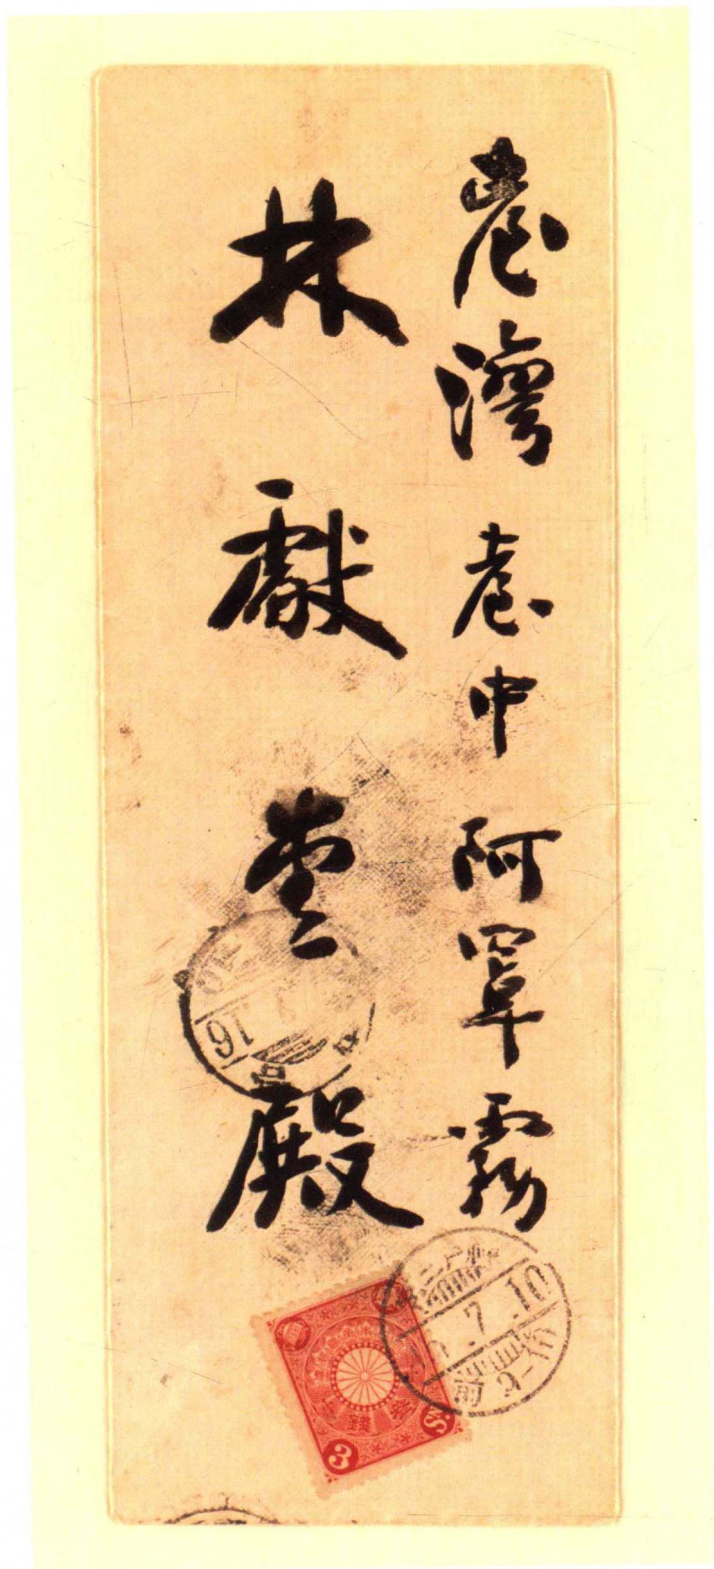 臺灣臺中阿罩霧
林獻堂殿
16
7 10
前
3
3 Sn